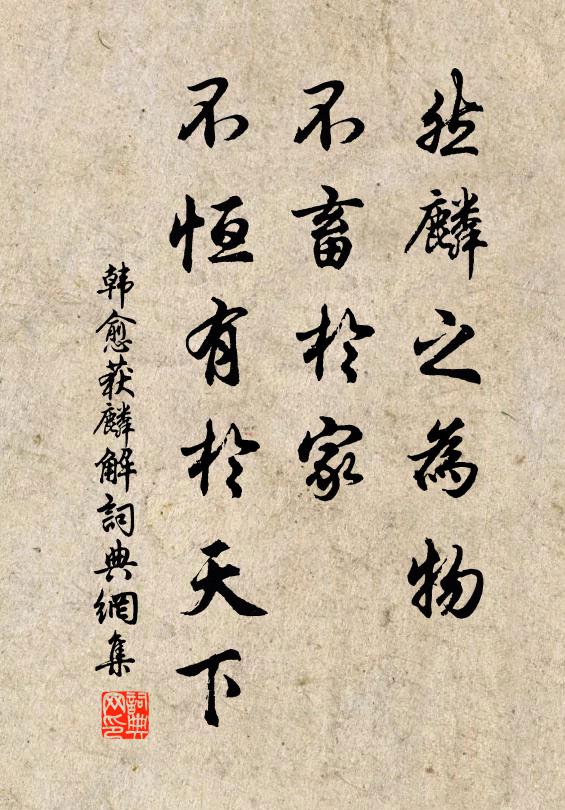 然麟之為物
不畜於家
不恒有於天下
韩愈获麟解詞典網集
詞典网印